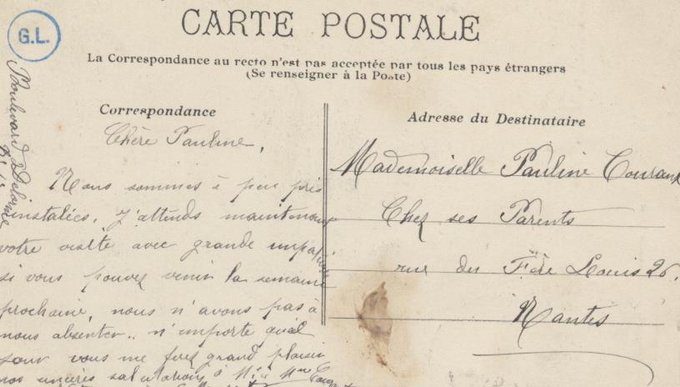 G.L.
CARTE POSTALE
La Correspondance au recto n'est pas acceptée par tous les pays étrangers
(Se renseigner à la Poste)
Correspondance
Chère Pauline,
Nous sommes à peu près
installées, j'attends maintenant
votre visite avec grande impatience
si vous pouvez venir la semaine
prochaine, nous n'avons pas à
nous absenter.. n'importe quel
jour vous me ferez grand plaisir
nos sincères salutations à Mr &amp; Mme
Boulevard Delorme
Adresse du Destinataire
Mademoiselle Pauline
Chez ses Parents
rue du Frère Louis 26.
Nantes